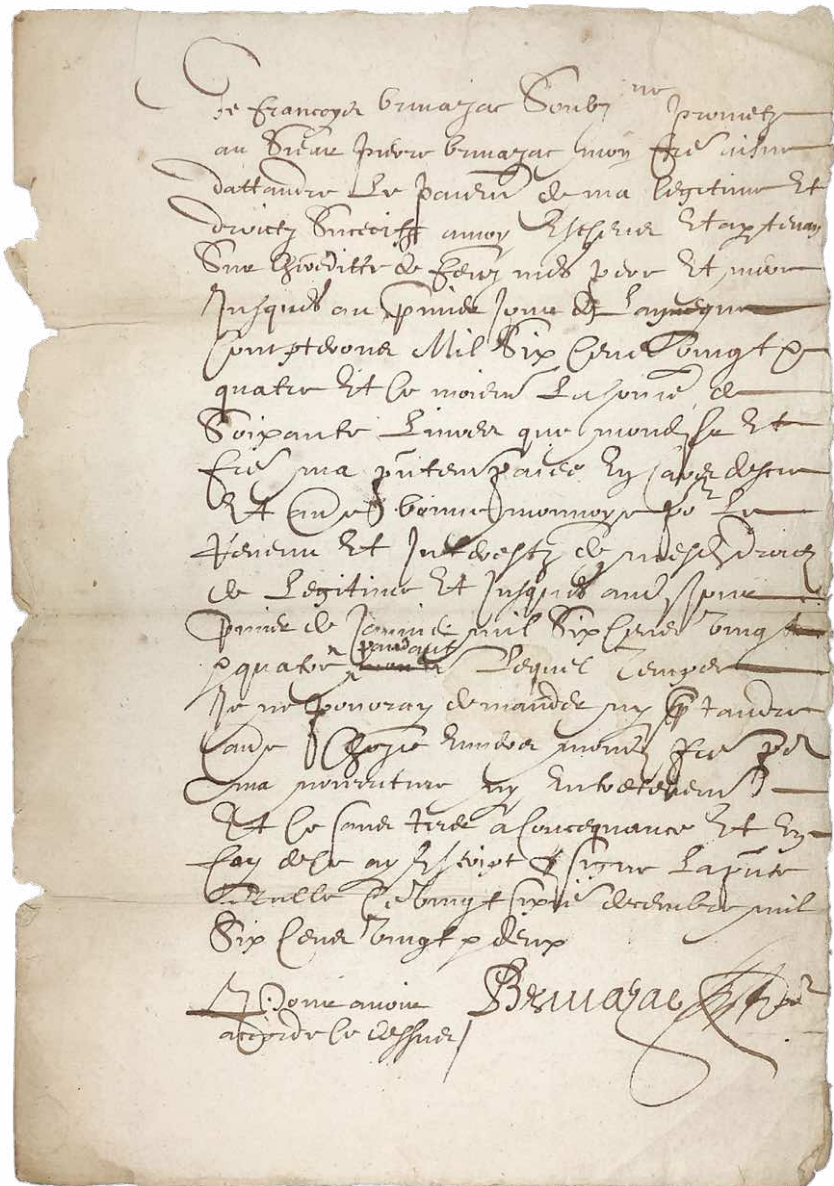 Je Françoys brmazac Soubz ne prometz
au Sieur pierre brmazac mon fre aisne
dattandre Le paiemt de ma legitime Et
droictz Sucecifz amoy Escheus Et apartenan
Sur lhereditte de feuz mes pere Et mere
Jusques au pmier Jour de Lannee que
Compterons Mil Six Cens vingt &
quatre Et Ce moient La some de
Soixante Liures que mondt sr Et
fre ma pntemt paiee En
Et aude bonne monnoye por Le
Reuenu Et Interestz de mesdz droictz
de Legitime Et Jusques audt Jour
pmier de Januier mil Six Cens vingt
& quatre pandant Lequel Temps
Je ne pouray demander ny pretandre
aude Chose enuers mondt fre por
ma nourriture ny Entretenemt
Et Ce sans tirer a Consequance Et En
foy de Ce ay Escript & signe La pnte
Ce vingt sixie decembre mil
Six Cens vingt & deux
Brmazac
Pour auoir
accorde Ce dessus